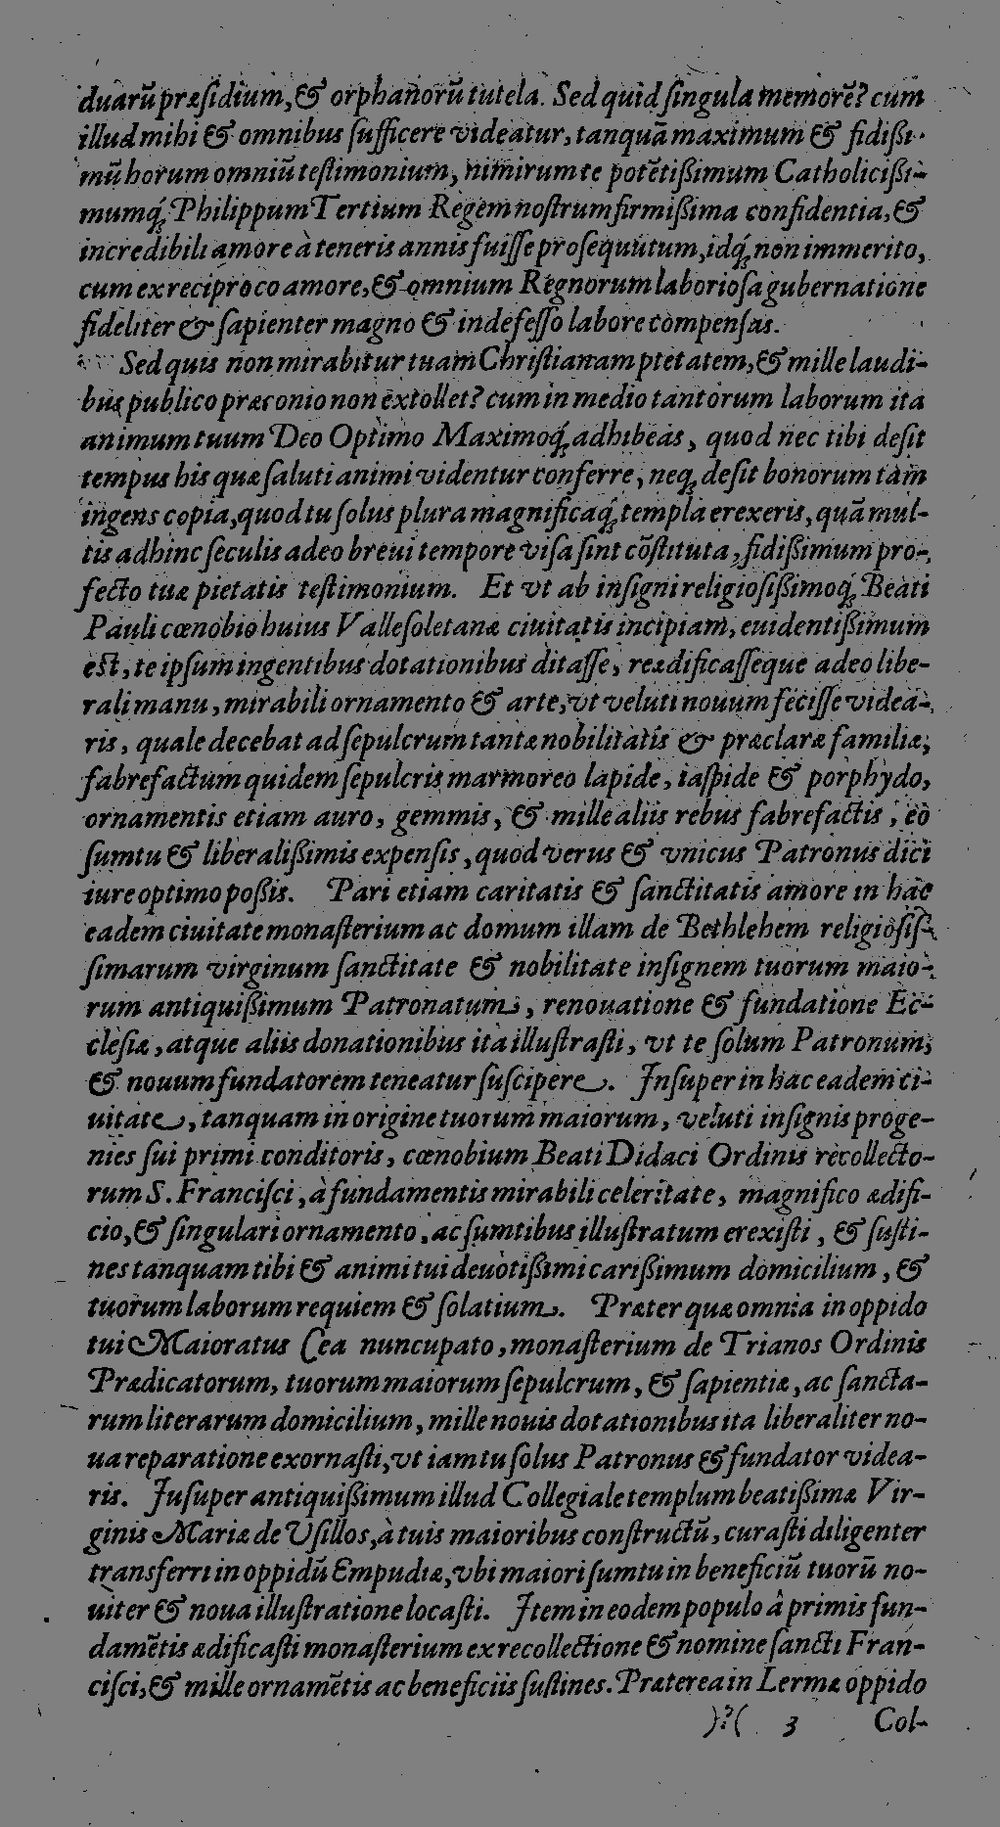 duarū præſidium, & orphanorū tutela. Sed quid ſingula memorē? cum
illud mihi & omnibus ſufficere videatur, tanquā maximum & fidißi-
mū horum omniū teſtimonium, nimirum te potētißimum Catholicißi-
mumq́; Philippum Tertium Regem noſtrum firmißima confidentia, &
incredibili amore à teneris annis fuiſſe proſequutum, idq́; non immerito,
cum ex reciproco amore, & omnium Regnorum laborioſa gubernatione
fideliter & ſapienter magno & indefeſſo labore compenſas.
Sed quis non mirabitur tuam Chriſtianam pietatem, & mille laudi-
bus publico præconio non extollet? cum in medio tantorum laborum ita
animum tuum Deo Optimo Maximoq́; adhibeas, quod nec tibi deſit
tempus his quæ ſaluti animi videntur conferre, neq; deſit bonorum tam
ingens copia, quod tu ſolus plura magnificaq́; templa erexeris, quā mul-
tis adhinc ſeculis adeo breui tempore viſa ſint cōſtituta, fidißimum pro-
fecto tuæ pietatis teſtimonium. Et vt ab inſigni religioſißimoq́; Beati
Pauli cœnobio huius Valleſoletanæ ciuitatis incipiam, euidentißimum
eſt, te ipſum ingentibus dotationibus ditaſſe, reædificaſſeque adeo libe-
rali manu, mirabili ornamento & arte, vt veluti nouum feciſſe videa-
ris, quale decebat ad ſepulcrum tantæ nobilitatis & præclaræ familiæ,
fabrefactum quidem ſepulcris marmoreo lapide, iaſpide & porphydo,
ornamentis etiam auro, gemmis, & mille aliis rebus fabrefactis, eo
ſumtu & liberalißimis expenſis, quod verus & vnicus Patronus dici
iure optimo poßis. Pari etiam caritatis & ſanctitatis amore in hac
eadem ciuitate monaſterium ac domum illam de Bethlehem religioſiſ-
ſimarum virginum ſanctitate & nobilitate inſignem tuorum maio-
rum antiquißimum Patronatum, renouatione & fundatione Ec-
cleſiæ, atque aliis donationibus ita illuſtraſti, vt te ſolum Patronum,
& nouum fundatorem teneatur ſuſcipere. Inſuper in hac eadem ci-
uitate, tanquam in origine tuorum maiorum, veluti inſignis proge-
nies ſui primi conditoris, cœnobium Beati Didaci Ordinis recollecto-
rum S. Franciſci, à fundamentis mirabili celeritate, magnifico ædifi-
cio, & ſingulari ornamento, ac ſumtibus illuſtratum erexiſti, & ſuſti-
nes tanquam tibi & animi tui deuotißimi carißimum domicilium, &
tuorum laborum requiem & ſolatium. Præter quæ omnia in oppido
tui Maioratus Cea nuncupato, monaſterium de Trianos Ordinis
Prædicatorum, tuorum maiorum ſepulcrum, & ſapientiæ, ac ſancta-
rum literarum domicilium, mille nouis dotationibus ita liberaliter no-
ua reparatione exornaſti, vt iam tu ſolus Patronus & fundator videa-
ris. Juſuper antiquißimum illud Collegiale templum beatißimæ Vir-
ginis Mariæ de Uſillos, à tuis maioribus conſtructū, curaſti diligenter
transferri in oppidū Empudiæ, vbi maiori ſumtu in beneficiū tuorū no-
uiter & noua illuſtratione locaſti. Item in eodem populo à primis fun-
damētis ædificaſti monaſterium ex recollectione & nomine ſancti Fran-
ciſci, & mille ornamētis ac beneficiis ſuſtines. Præterea in Lermæ oppido
)?( 3 Col-